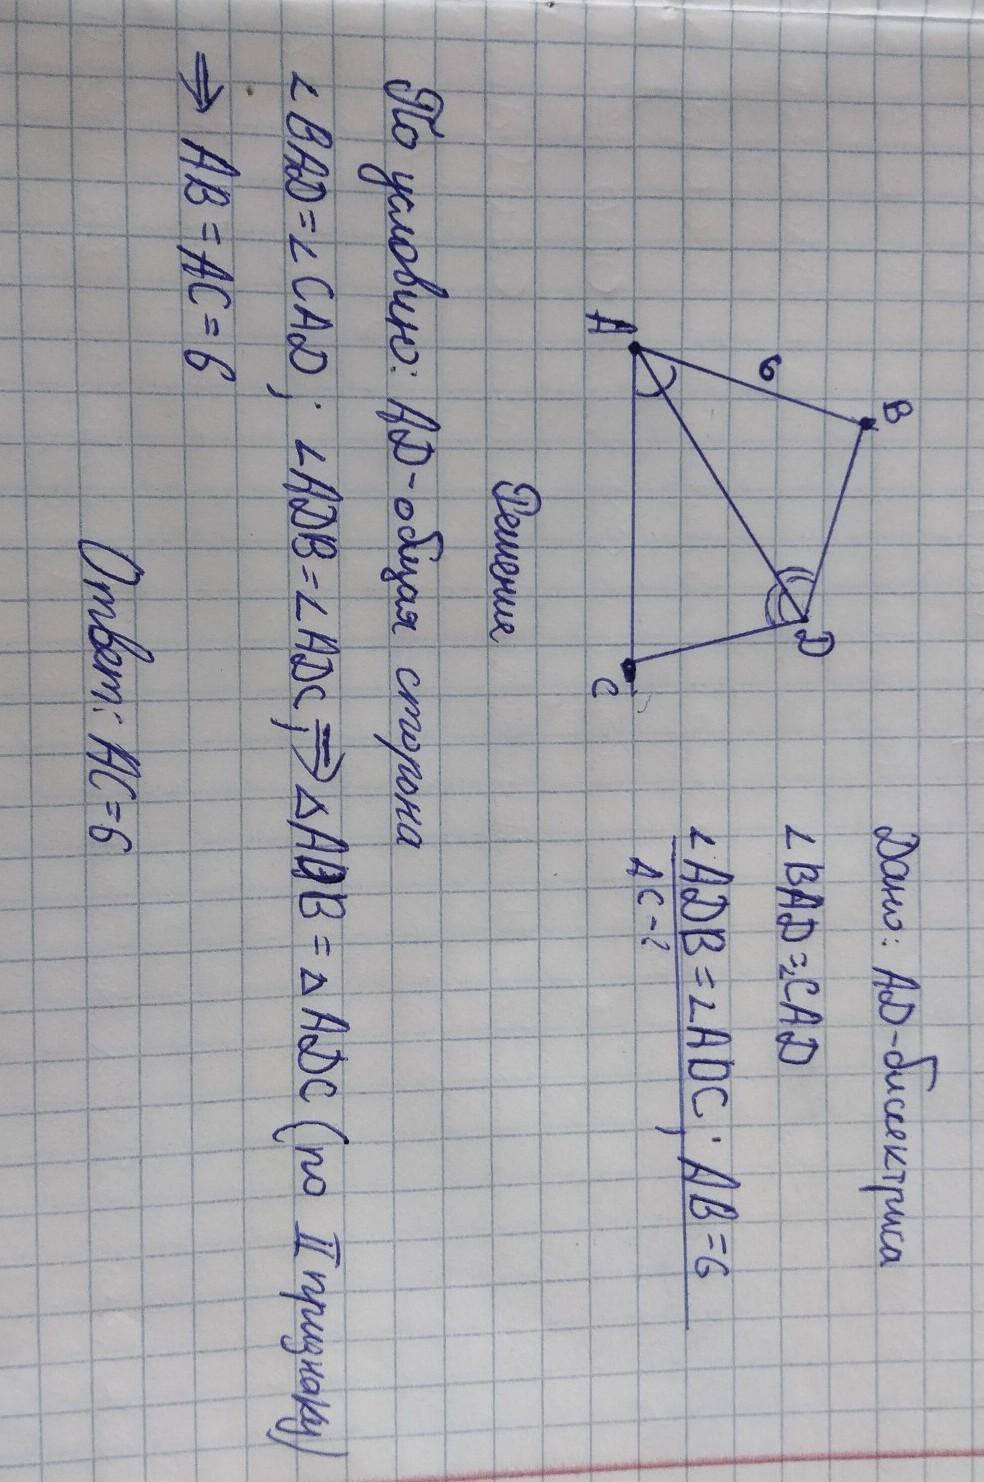 A
6
B
D
C
Дано: AD-биссектриса
∠BAD=∠CAD
∠ADB=∠ADC; AB=6
AC-?
Решение
По условию: AD-общая сторона
∠BAD=∠CAD; ∠ADB=∠ADC, ⇒ ΔADB=ΔADC (по II признаку)
⇒ AB=AC=6
Ответ: AC=6